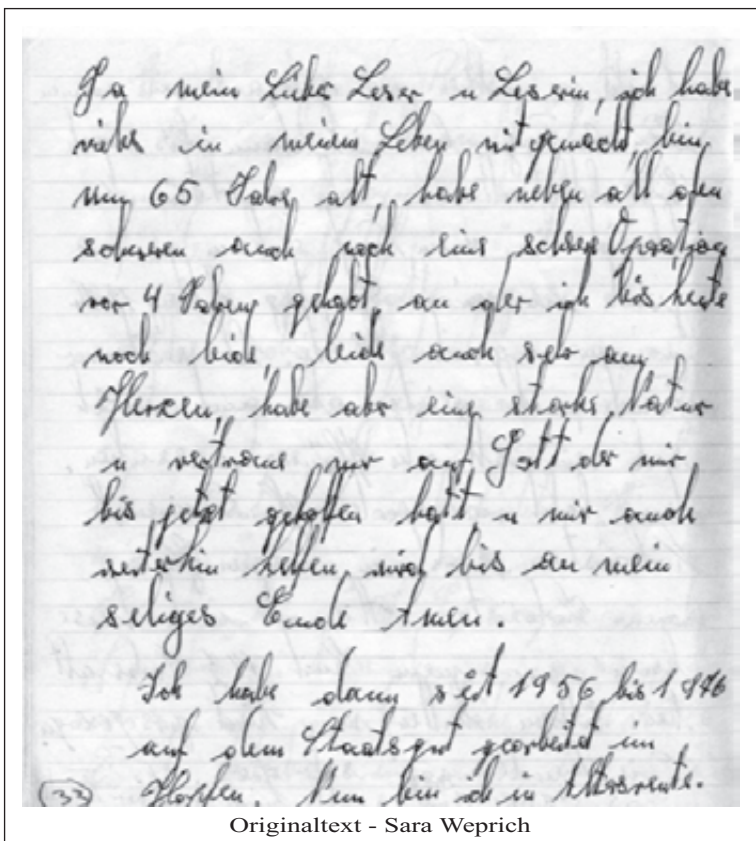 Ja mein Liber Leser u Leserin, ich habe
vieles in meinem Leben mitgemacht, bin
nun 65 Jahre alt, habe neben all dem
schweren auch noch eine schwere Operation
vor 4 Jahren gehabt, an der ich bis heute
noch leide, leide auch sehr am
Herzen, habe aber eine starke Natur
u vertraue nur auf Gott der mir
bis jetzt geholfen hatt u mir auch
weiterhin helfen wird bis an mein
seliges Ende Amen.
Ich habe dann seit 1956 bis 1976
auf dem Staatsgut gearbeitet im
(33) Hopfen. Nun bin ich in Altersrente.
Originaltext - Sara Weprich